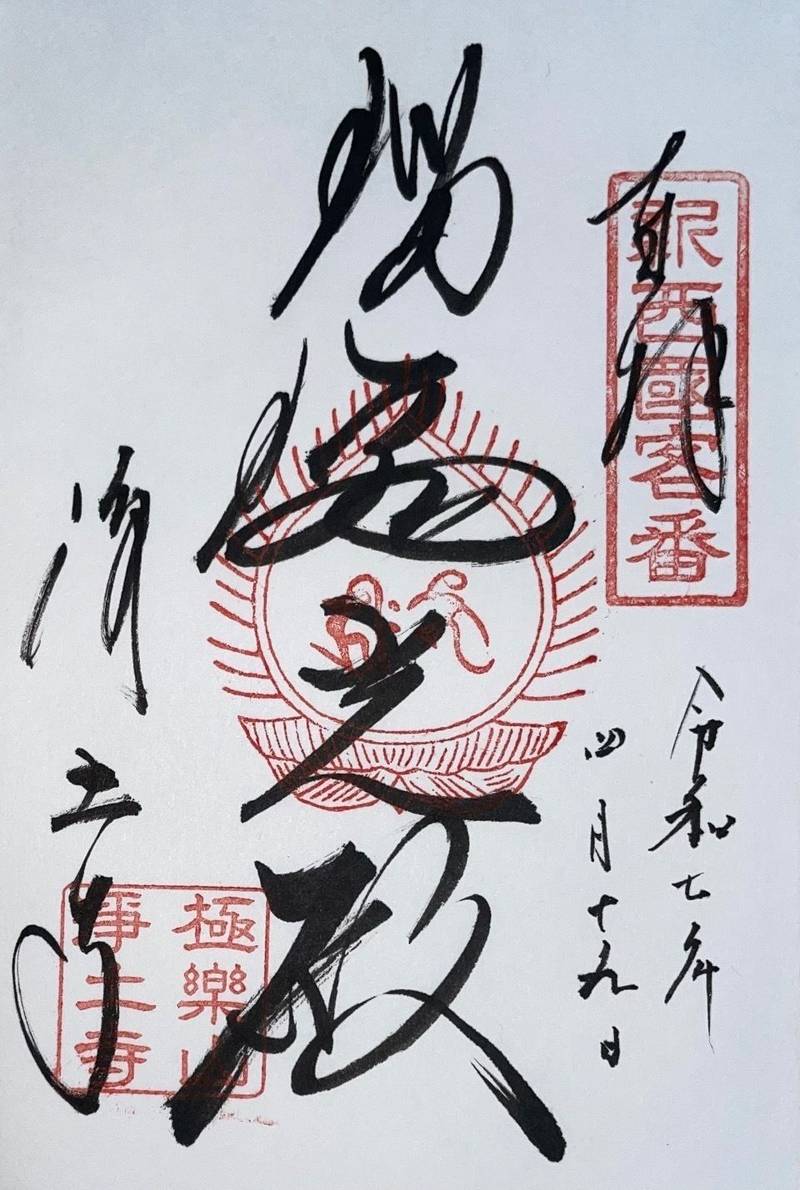 奉拝
新西國客番
令和七年
四月十九日
瑠璃光殿
浄土寺
極樂山
淨土寺